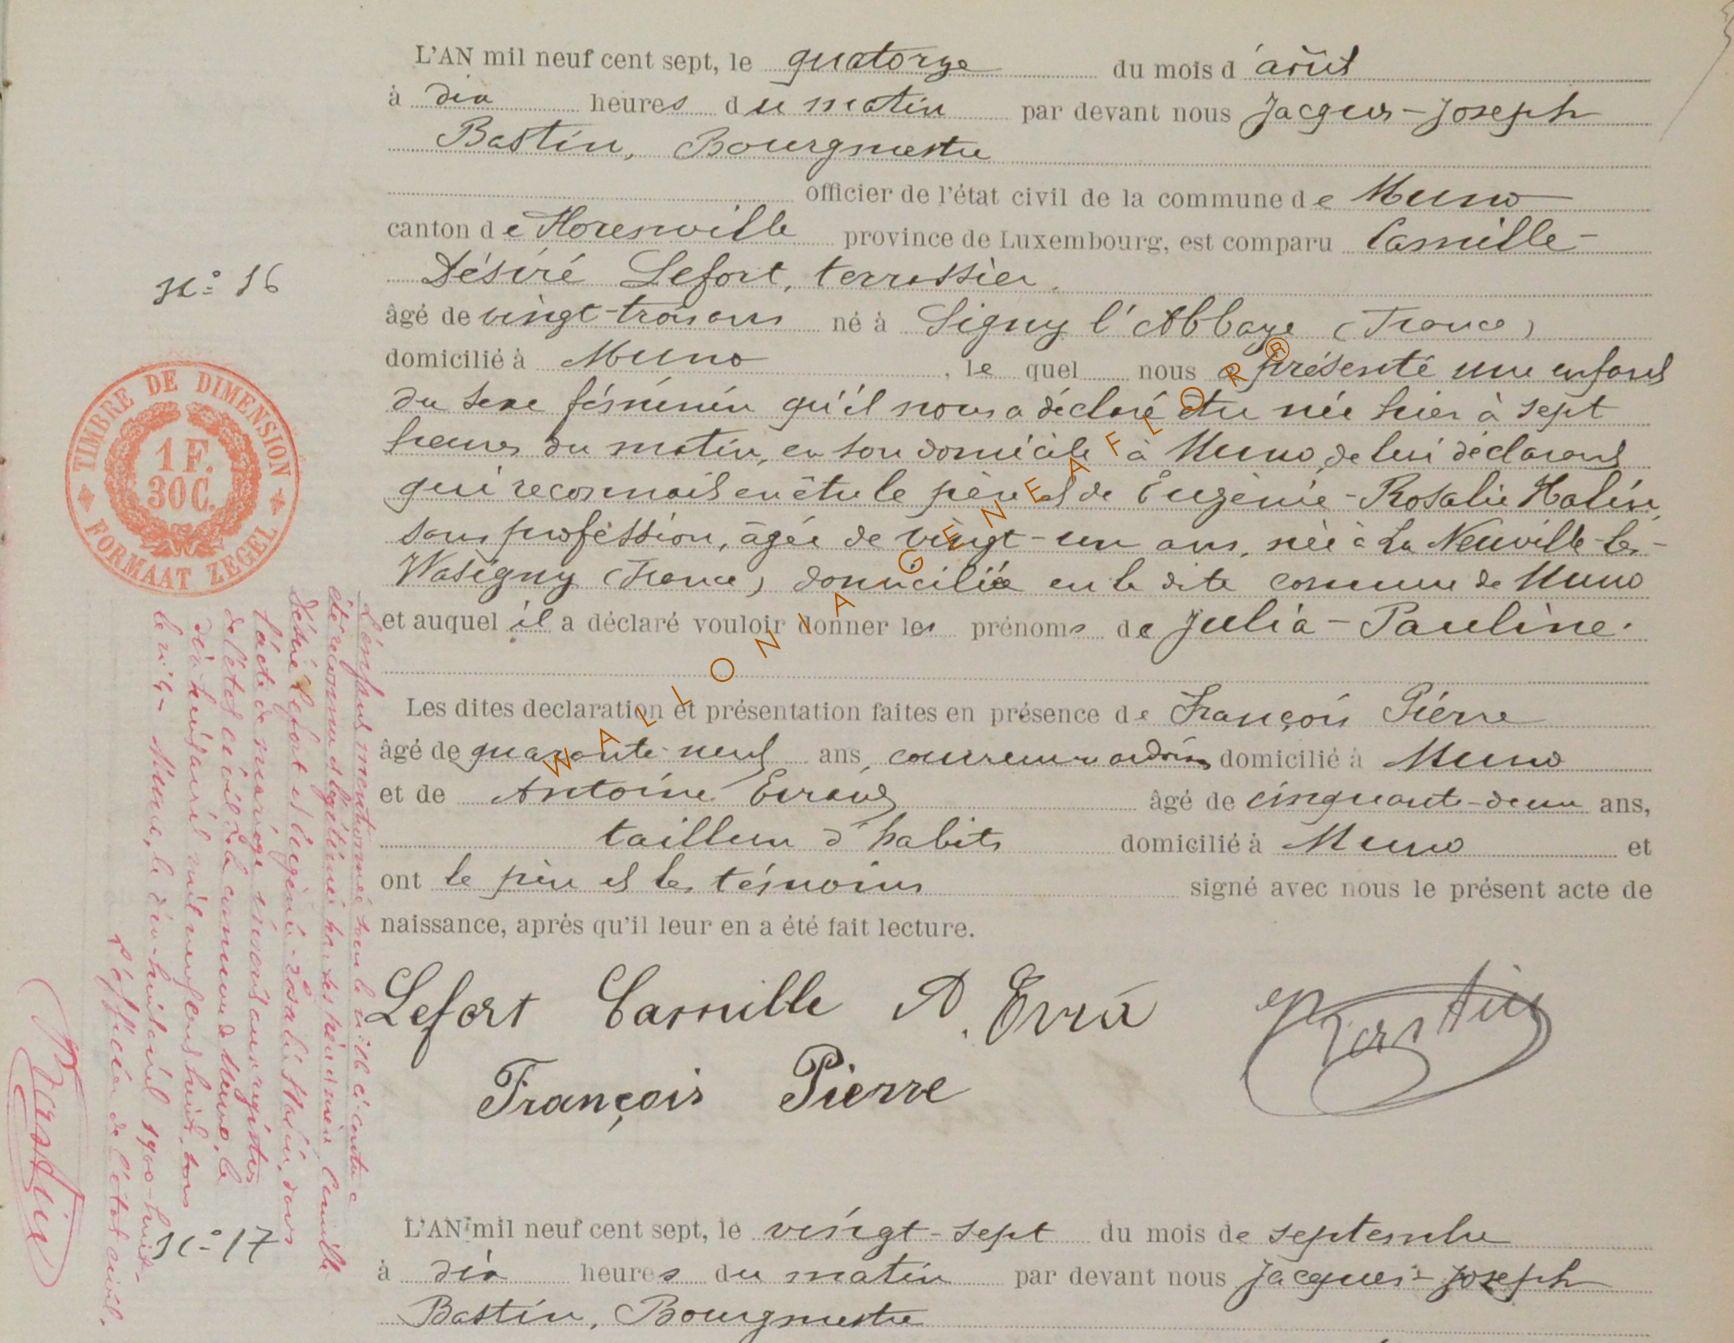 L'AN mil neuf cent sept, le quatorze du mois d'août
à dix heures du matin par devant nous Jacques-Joseph
Bastin, Bourgmestre
officier de l'état civil de la commune de Muno
canton de Florenville province de Luxembourg, est comparu Camille-
Désiré Lefort, terrassier,
âgé de vingt-trois ans né à Signy l'Abbaye (France)
domicilié à Muno, le quel nous a présenté une enfant
du sexe féminin qu'il nous a déclaré être née hier à sept
heures du matin, en son domicile à Muno, de lui déclarant
qui reconnait en être le père et de Eugénie-Rosalie Halin,
sans profession, âgée de vingt-un ans, née à La Neuville-les-
Wasigny (France) domiciliée en la dite commune de Muno
et auquel il a déclaré vouloir donner les prénoms de Julia-Pauline.
Les dites declaration et présentation faites en présence de François Pierre
âgé de quarante-neuf ans, couvreur en ardoises domicilié à Muno
et de Antoine Evrard âgé de cinquante-deux ans,
tailleur d'habits domicilié à Muno et
ont le père et les témoins signé avec nous le présent acte de
naissance, après qu'il leur en a été fait lecture.
Lefort Camille A. Evra Bastin
François Pierre
N° 16
TIMBRE DE DIMENSION
1 F.
30 C.
FORMAAT ZEGEL
L'enfant mentionnée sous le n° 16 ci-contre
été reconnue & légitimée par ses père et mère Camille
Désiré Lefort et Eugénie-Rosalie Halin, dans
l'acte de mariage inscrit aux registres
de l'état civil de la commune de Muno, le
dix-huit avril mil neuf cent huit, sous
le n° Muno, le dix-huit avril 1900-huit-
L'officier de l'état civil.
Bastin
N° 17
L'AN mil neuf cent sept, le vingt-sept du mois de septembre
à dix heures du matin par devant nous Jacques-Joseph
Bastin, Bourgmestre
WALLONIA GENEAFLOR®